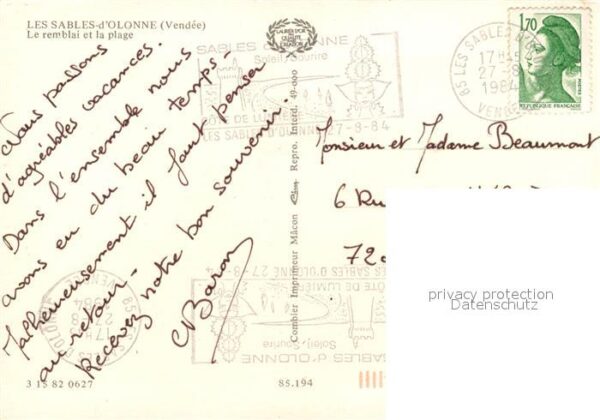 LES SABLES-d'OLONNE (Vendée)
Le remblai et la plage
Nous passons
d'agréables vacances.
Dans l'ensemble nous
avons eu du beau temps
Malheureusement il faut penser
au retour -
Recevez notre bon souvenir.
C Baron
3 15 82 0627
85.194
Combier Imprimeur Mâcon Repro. Interd. 49-000
SABLES D'OLONNE
Soleil-Sourire
CÔTE DE LUMIÈRE
LES SABLES D'OLONNE 27-8-84
85 LES SABLES D'OLONNE
17H45
27-8
1984
VENDÉE
1,70
POSTES
REPUBLIQUE FRANÇAISE
Monsieur et Madame Beaumont
6 Ru
72
privacy protection
Datenschutz
27-8-84
CÔTE DE LUMIÈRE
LES SABLES D'OLONNE
Soleil-Sourire
SABLES D'OLONNE